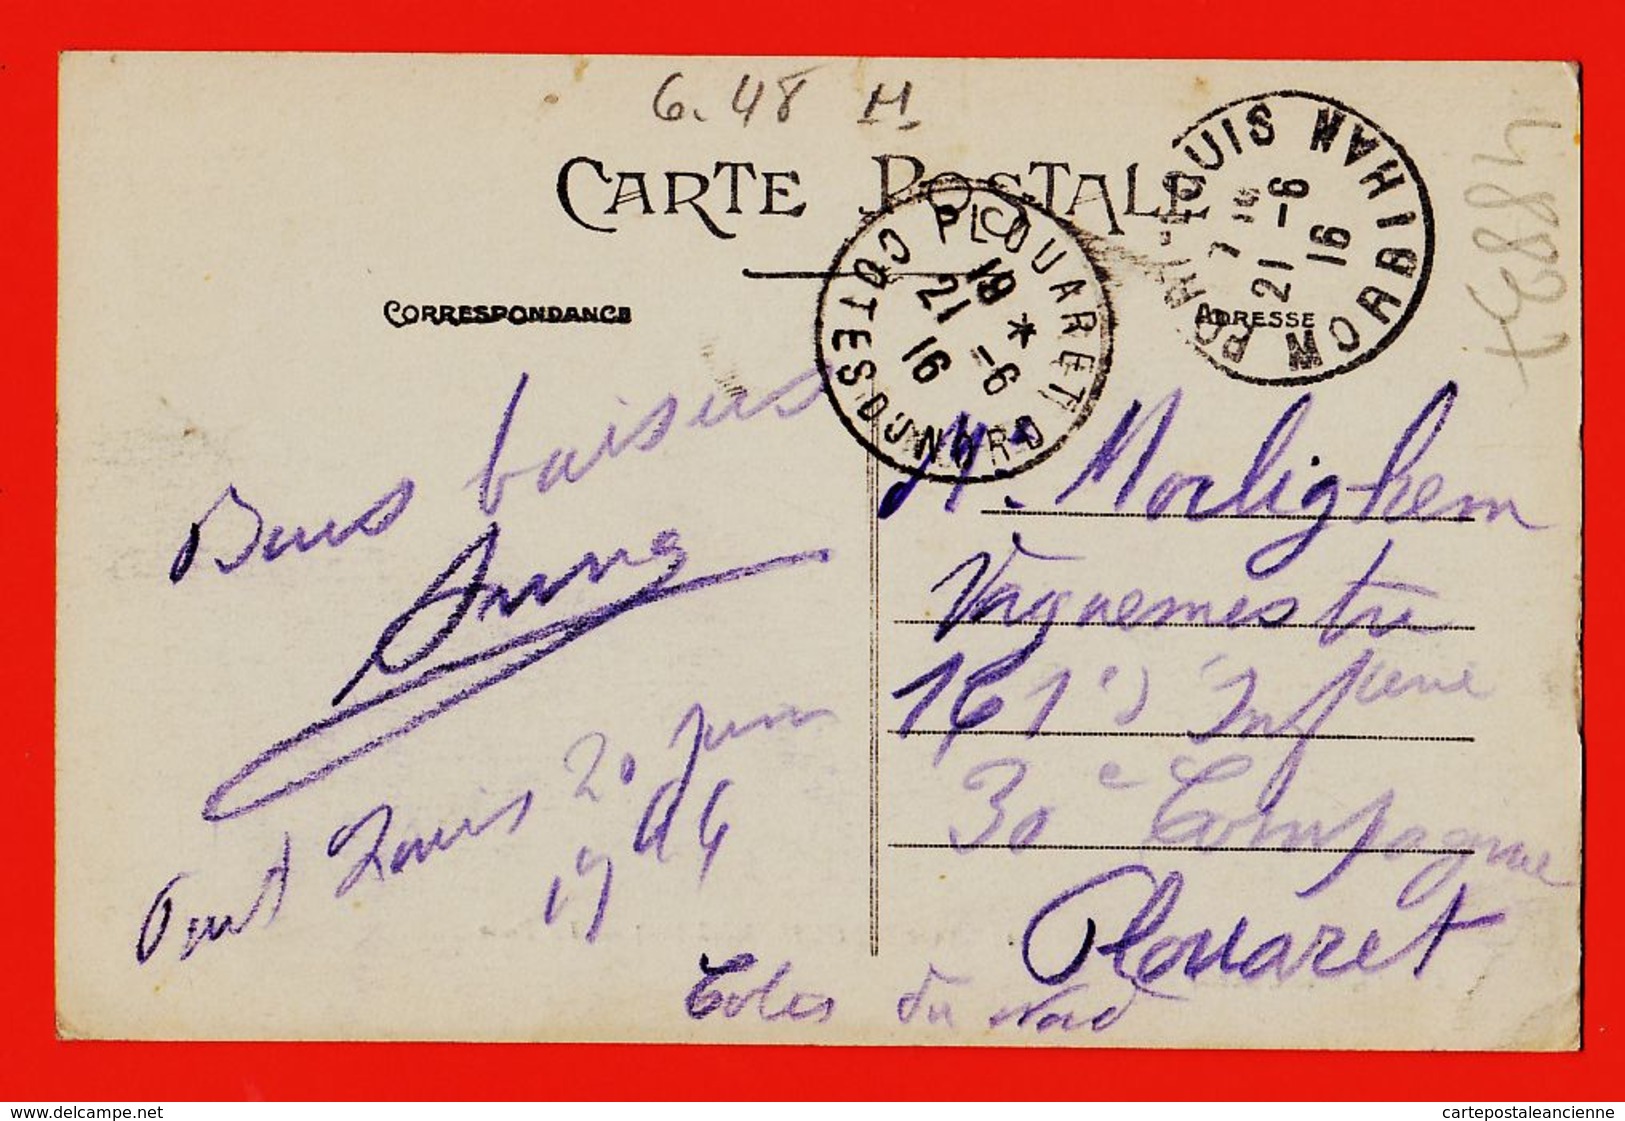 6.48 M.
CARTE POSTALE
CORRESPONDANCE
ADRESSE
PLOUARET
19 *
21 -6
16
COTES-DU-NORD
PORT-LOUIS
7
21-6
16
MORBIHAN
Bons baisers
Anna
Port Louis 20 Juin
1916
M. Morlighem
Vaguemestre
161e d'Infterie
30e Compagnie
Plouaret
Cotes du Nord
https://www.delcampe.net
cartepostaleancienne